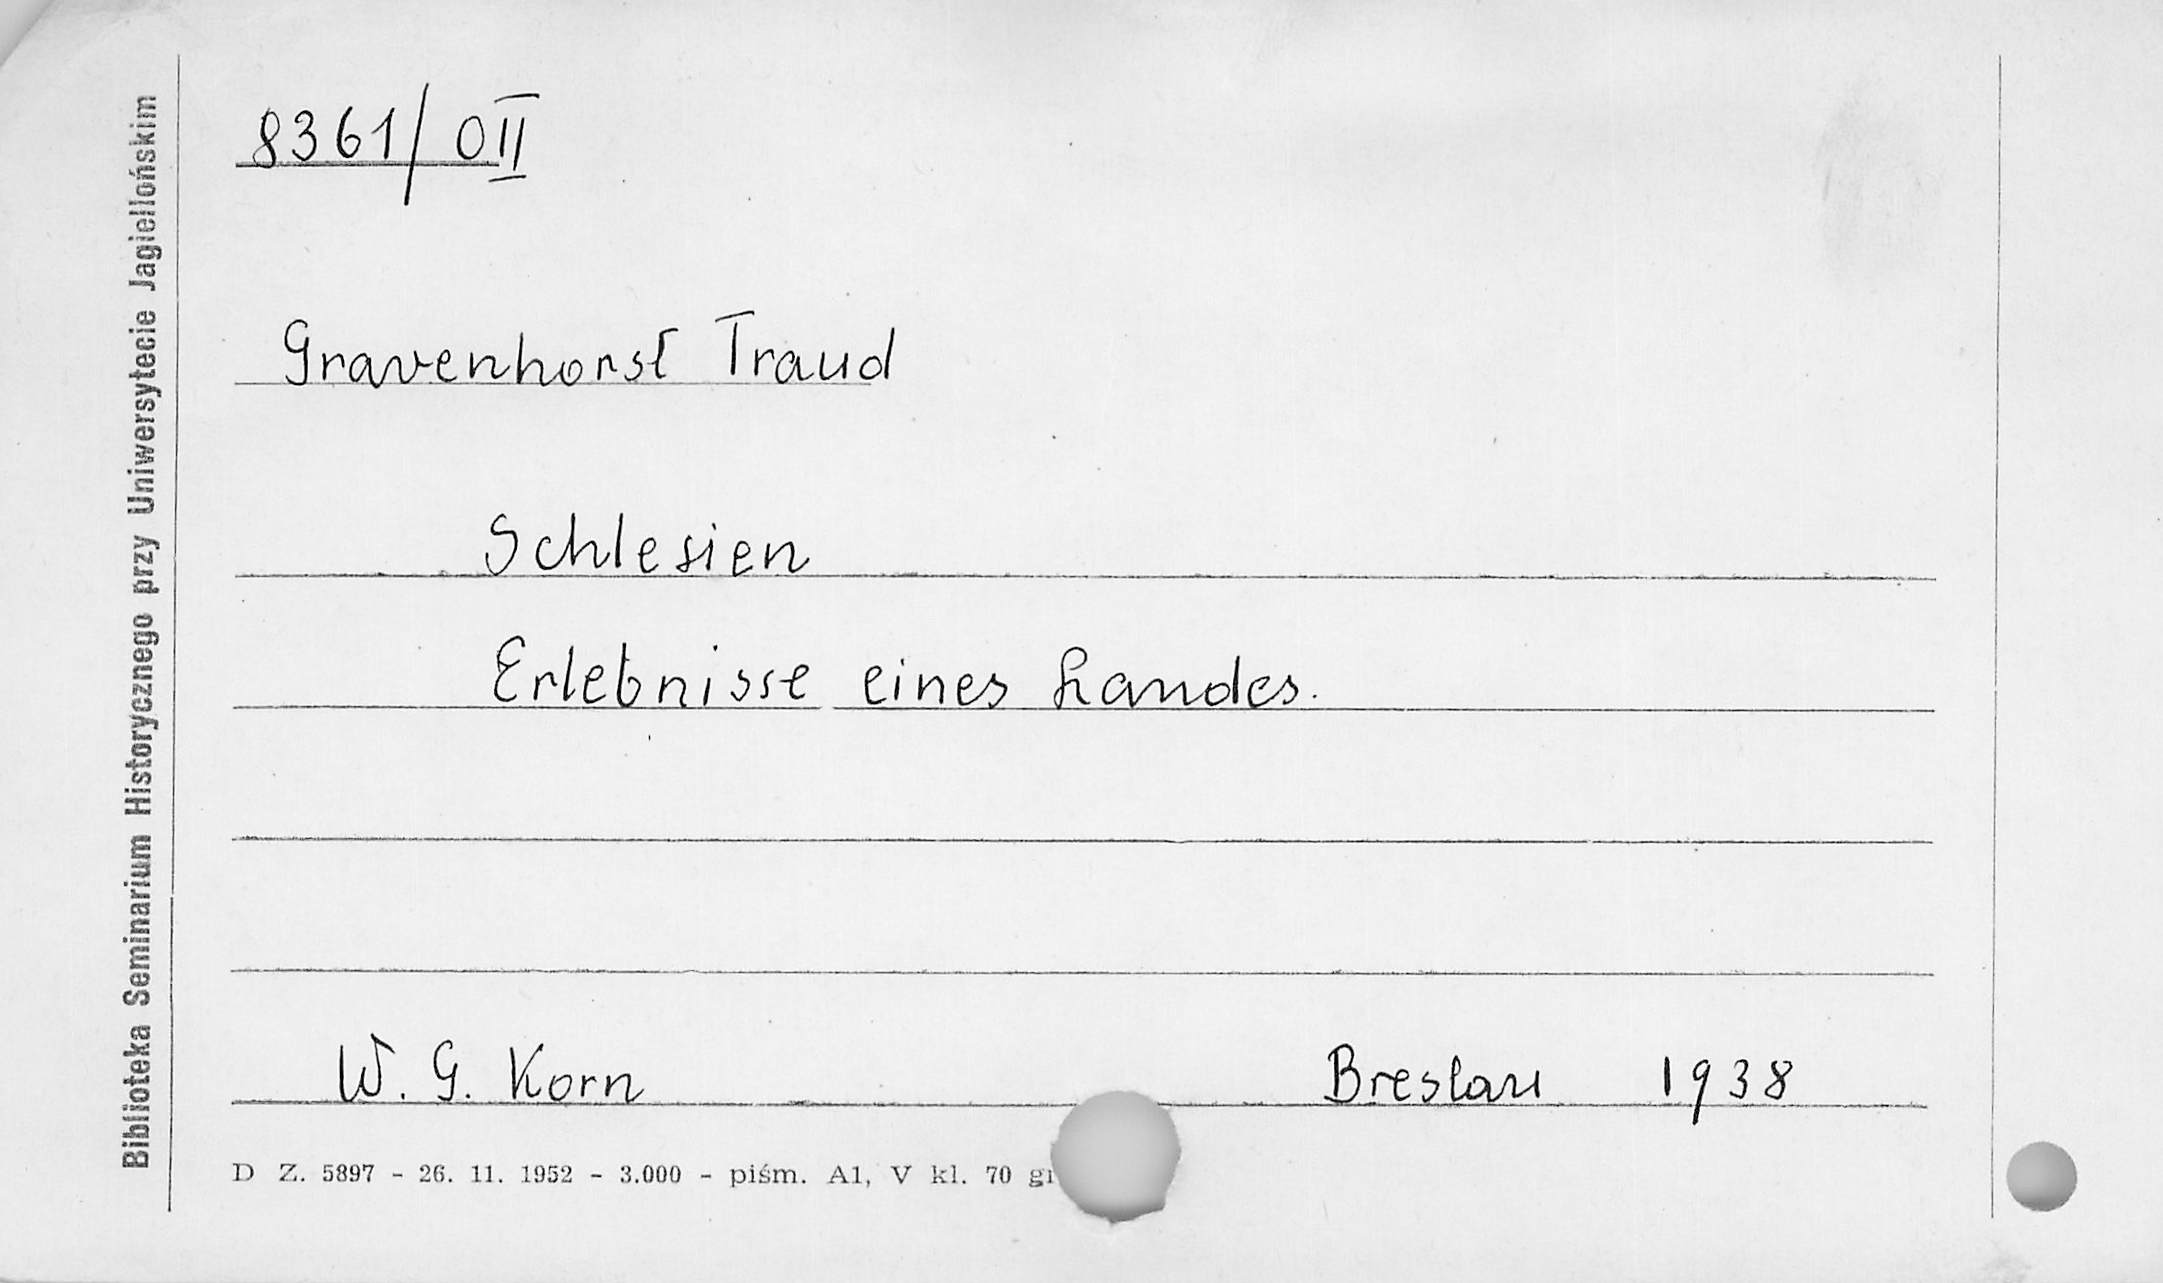 8361/0II
Gravenhorst Traud
Schlesien
Erlebnisse eines Landes.
W. G. Korn Breslau 1938
D Z. 5897 - 26. 11. 1952 - 3.000 - piśm. A1, V kl. 70 gr
Biblioteka Seminarium Historycznego przy Uniwersytecie Jagiellońskim